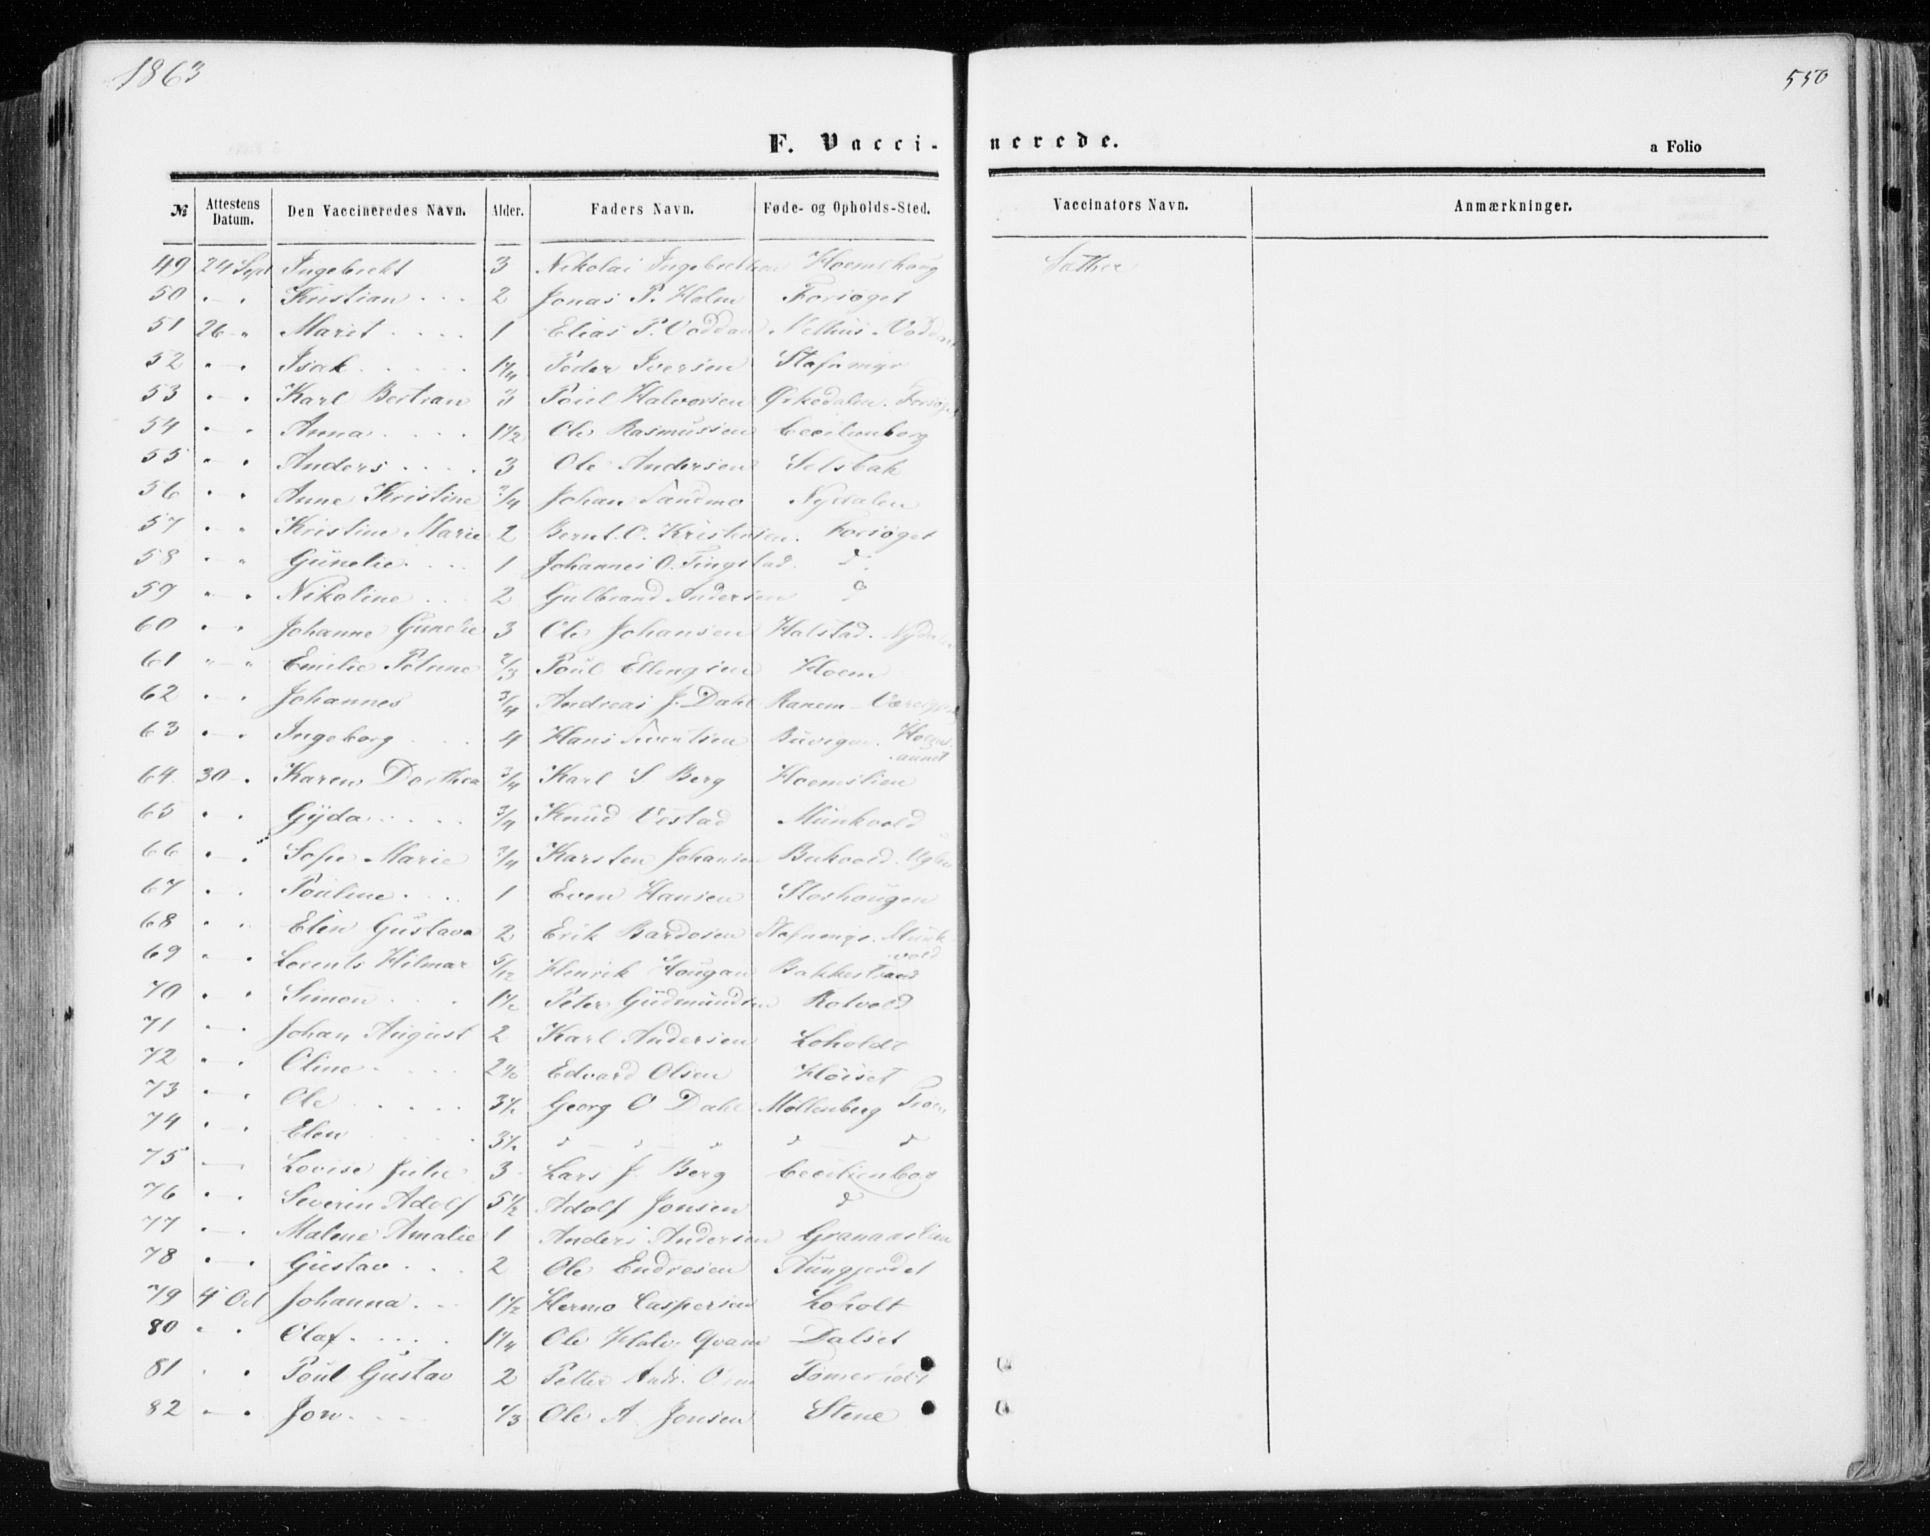 1863
550
F. Vaccinerede.
a Folio
№ Attestens Datum. Den Vaccineredes Navn. Alder. Faders Navn. Føde- og Opholds-Sted. Vaccinators Navn. Anmærkninger.
49 24 Sept Ingebrekt 3 Nikolai Ingebretsen Hoemshoug
50 " " Kristian 2 Jonas P. Holm Forsøget
51 26 " Marit 1 Elias P. Voddan
52 " " Isak 1 1/4 Peder Iversen Stafnmyr
53 " " Karl Bertran Poul Halvorsen Ørkedalen. Forsøget
54 " " Anna 1 1/2 Ole Rasmussen Cecilienborg
55 " " Anders 3 Ole Andersen Selsbak
56 " " Anne Kristine 3/4 Johan Sandmo Nydalen
57 " " Kristine Marie 2 Bernt. O. Kristensen. Forsøget
58 " " Gunelie 1 Johannes O. Tingstad. d:
59 " " Nikoline 2 Gulbrand Andersen d
60 " " Johanne Gunelie 3 Ole Johansen Halstad. Nydalen
61 " " Emilie Petrine 2/3 Poul Ellingsen Hoem
62 " " Johannes 3/4 Andreas J. Dahl Ranem
63 " " Ingeborg 4 Hans Sivertsen Buvigen.
64 30 " Karen Dorthea 3/4 Karl S Berg Hoemslien
65 " " Gyda 3/4 Knud Vestad Munkvold
66 " " Sofie Marie 3/4 Karsten Johansen
67 " " Pouline 1 Even Hansen
68 " " Elen Gustava 2 Erik Bardosen Munkvold
69 " " Lorents Hilmar 5/12 Henrik Hougan Bakkestrand
70 " " Simon 1 1/2 Peter Gudmundsen Rotvold
71 " " Johan August 2 Karl Andersen Loholdt
72 " " Oline Edvard Olsen Høiset
73 " " Ole 3 1/2 Georg O Dahl Møllenberg
74 " " Elen 3 1/2 d — d d — d
75 — Lovise Julie 3 Lars J. Berg Cecilienborg
76 " " Severin Adolf 5 1/2 Adolf Jonsen d
77 " " Malene Amalie 1 Anders Andersen Granaaslien
78 " " Gustav 2 Ole Endresen Aungjerdet
79 4 Oct Johanna 1 1/2 Hermo Caspersen Loholt
80 " " Olaf 1 1/4 Ole Halv. Qvam Dalset
81 " " Poul Gustav 2 Petter Andr.
82 " " Jon 1/3 Ole A. Jonsen Stene